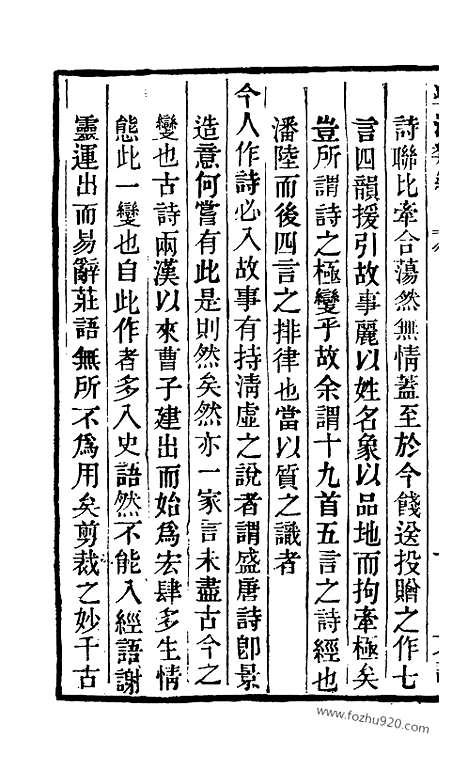 詩聯比牽合蕩然無情蓋至於今餞送投贈之作七
言四韻援引故事麗以姓名象以品地而拘牽極矣
豈所謂詩之極變乎故余謂十九首五言之詩經也
潘陸而後四言之排律也當以質之識者
今人作詩必入故事有持淸虛之說者謂盛唐詩卽景
造意何嘗有此是則然矣然亦一家言未盡古今之
變也古詩兩漢以來曹子建出而始爲宏肆多生情
態此一變也自此作者多入史語然不能入經語謝
靈運出而易辭莊語無所不爲用矣剪裁之妙千古
www.fozhu920.com